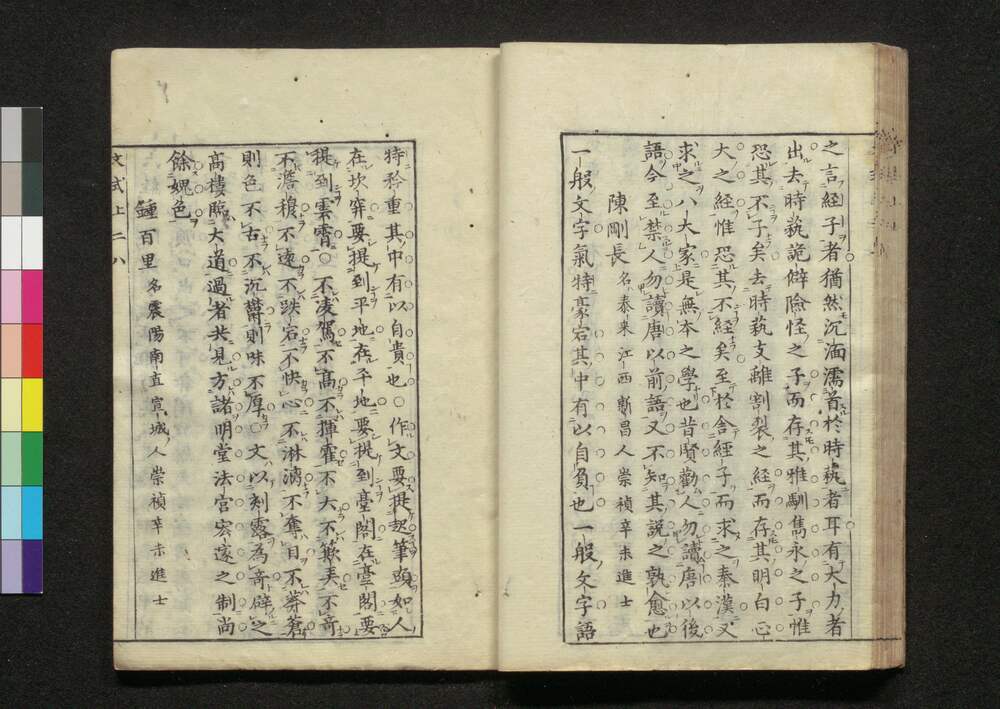 之言經子者猶然沉湎濡首於時執者耳有大力者
出去時執詭僻險怪之子而存其雅馴雋永之子惟
恐其不子矣去時執支離割裂之經而存其明白正
大之經惟恐其不經矣至於舍經子而求之秦漢又
求之八大家是無本之學也昔賢勸人勿讀唐以後
語今至禁人勿讀唐以前語又不知其說之孰愈也
陳剛長 名泰来江西新昌人崇禎辛未進士
一般文字氣特豪宕其中有以自負也一般文字語
特矜重其中有以自貴也○作文要提起筆頭如人
在坎穽要提到平地在平地要提到臺閣在臺閣要
提到雲霄○不凌駕不高不揮霍不大不欹美不奇
不澹穆不遠不跌宕不快心不淋漓不奪目不莽蒼
則色不古不沉鬱則味不厚○文以刻露為奇辟之
高樓臨大道過者共見方諸明堂法宮宏邃之制尚
餘媿色
鍾百里 名震陽南直宣城人崇禎辛未進士
文式上二八